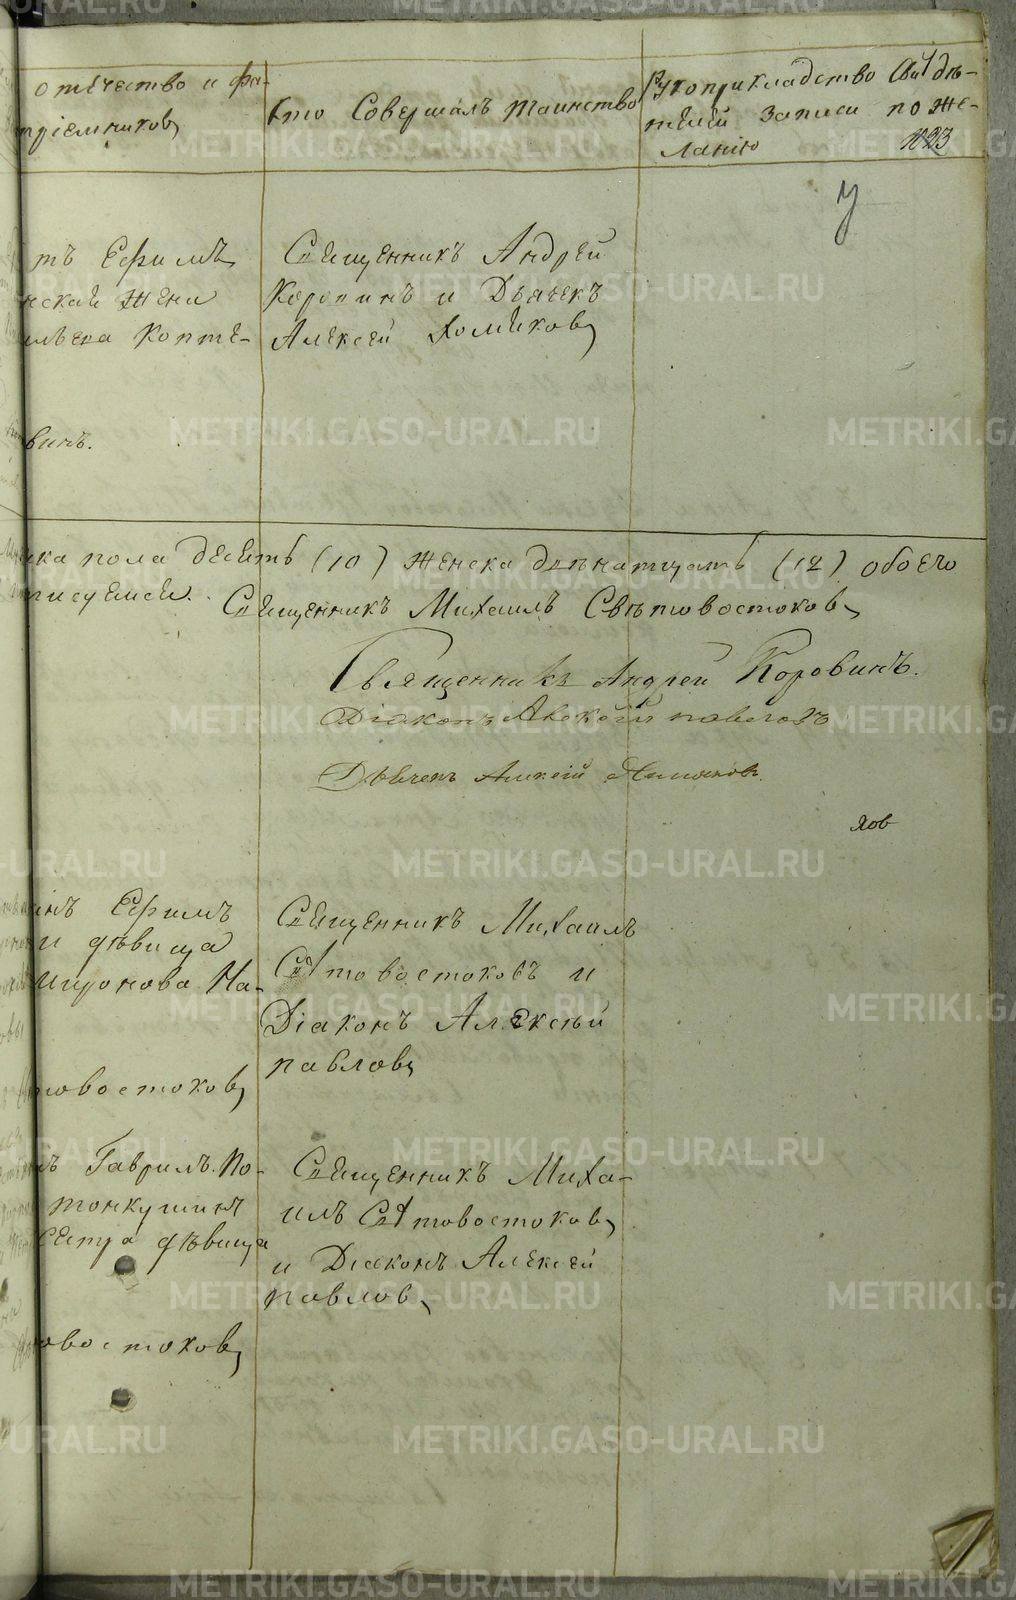 отечество и фа-
пріемниковъ
Кто Совершалъ таинство
Рукоприкладство Свидѣ-
телей записи по же-
ланію
123
У
тъ Ефимъ
нской жены
Копте-
винъ.
Священникъ Андрей
Коровинъ и Дьячекъ
Алексей Хомяковъ
ска пола десять (10) женска двѣнатцать (12) обоего
Священникъ Михаилъ Свѣтовостоковъ
Священникъ Андрей Коровинъ.
Діаконъ Алексѣй Павловъ
Дьячекъ Алексѣй Хомяковъ.
хов
инъ Ефимъ
и дѣвица
Миронова На-
товостоковъ
Священникъ Михаилъ
Святовостоковъ и
Діаконъ Алексѣй
павловъ
ъ Гаврилъ По-
тонкушинъ
Сестра дѣвица
овостоковъ
Священникъ Миха-
илъ Святовостоковъ
и Діаконъ Алексей
павловъ
METRIKI.GASO-URAL.RU